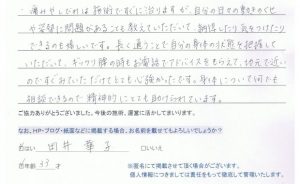 痛みやしびれは施術ですぐに治りますが、自分の日々の動きのくせ
や姿勢に問題があることも教えていただいて、納得したり気をつけたり
できるのも嬉しいです。長く通うことで自分の身体の状態を把握して
いただいて、ギックリ腰の時もお電話でアドバイスをもらえて、地元で近い
のですぐみていただけてとても心強かったです。身体について何でも
相談できるので精神的にとても助けられています。
ご協力ありがとうございました。今後の施術、運営に活かしてまいります。
なお、HP・ブログ・紙面などに掲載する場合、お名前を載せてもよろしいでしょうか?
お名前
はい 田井 華子 □いいえ
年齢 33 才
※匿名にて掲載させて頂く場合がございます。
個人情報につきましては責任をもって徹底して管理いたします。